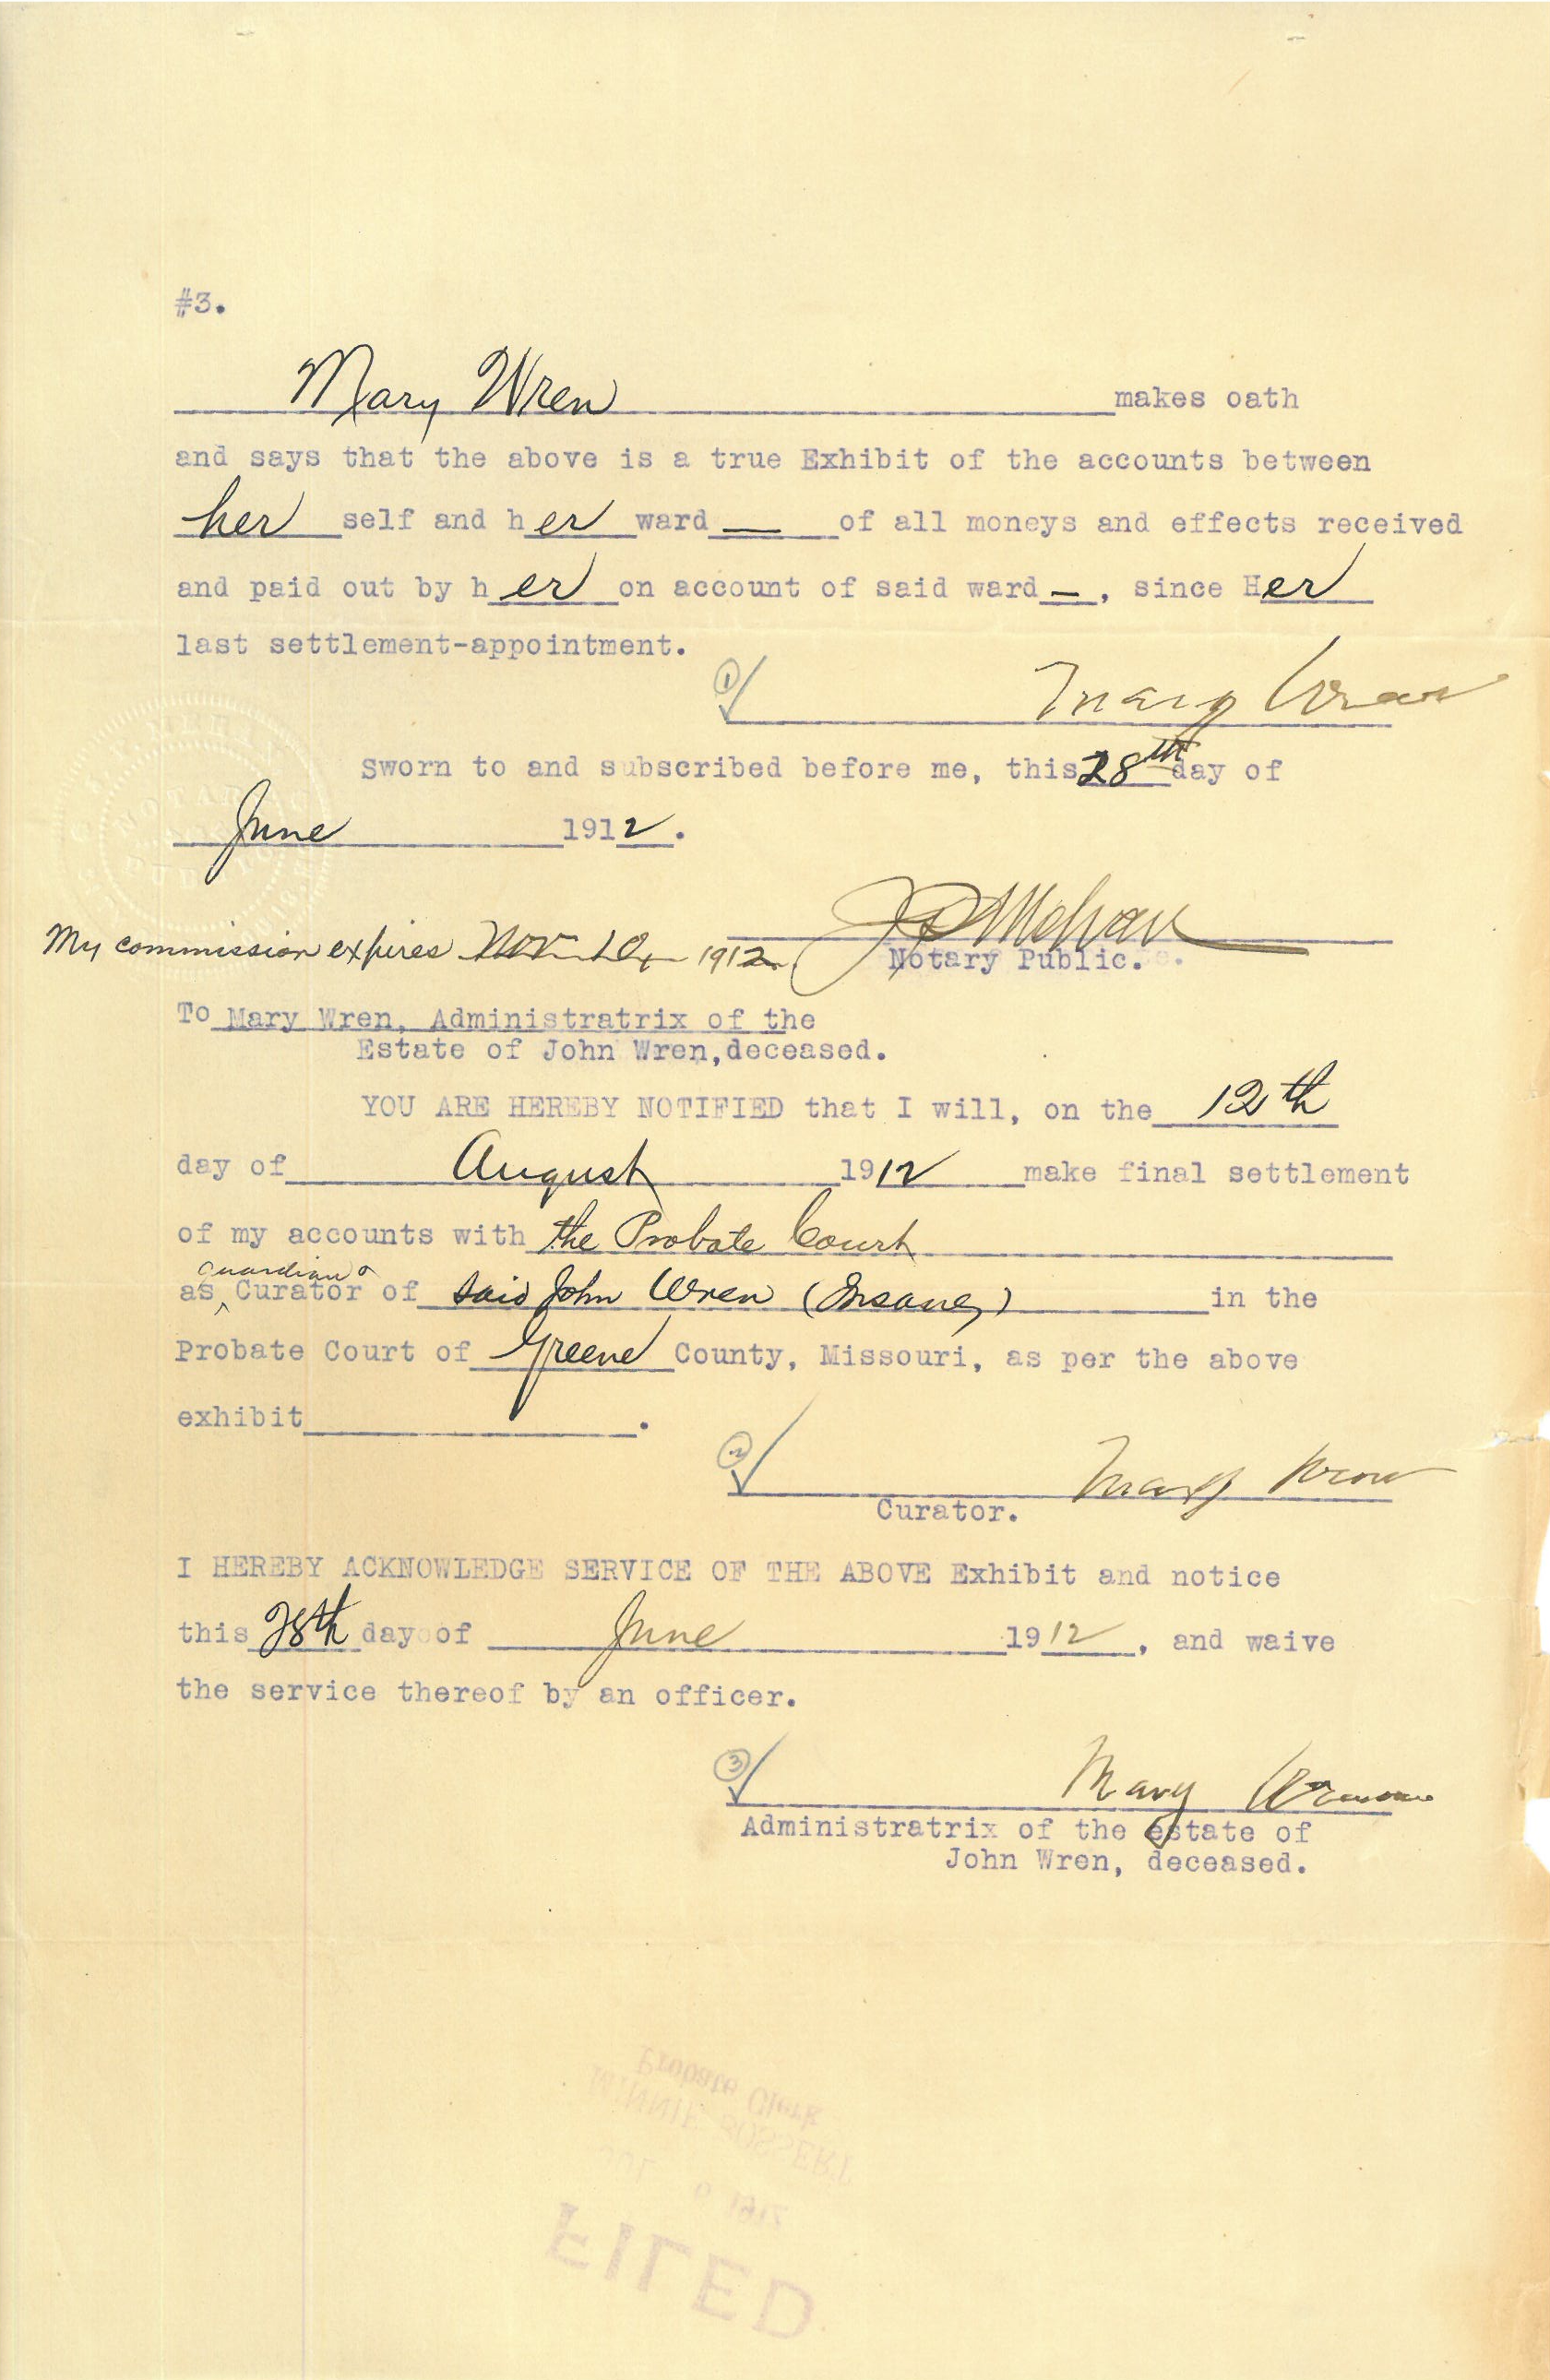 #3.
Mary Wren makes oath
and says that the above is a true Exhibit of the accounts between
her self and her ward — of all moneys and effects received
and paid out by her on account of said ward —, since Her
last settlement-appointment.
1 Mary Wren
Sworn to and subscribed before me, this 28th day of
June 1912.
My commission expires Nov 10, 1912.
Notary Public.
To Mary Wren, Administratrix of the
Estate of John Wren, deceased.
YOU ARE HEREBY NOTIFIED that I will, on the 12th
day of August 1912 make final settlement
of my accounts with the Probate Court
guardian &
as ^ Curator of said John Wren (Insane,) in the
Probate Court of Greene County, Missouri, as per the above
exhibit .
2 Mary Wren
Curator.
I HEREBY ACKNOWLEDGE SERVICE OF THE ABOVE Exhibit and notice
this 28th day of June 1912, and waive
the service thereof by an officer.
3 Mary Wren
Administratrix of the estate of
John Wren, deceased.
Probate Clerk
1912
FILED